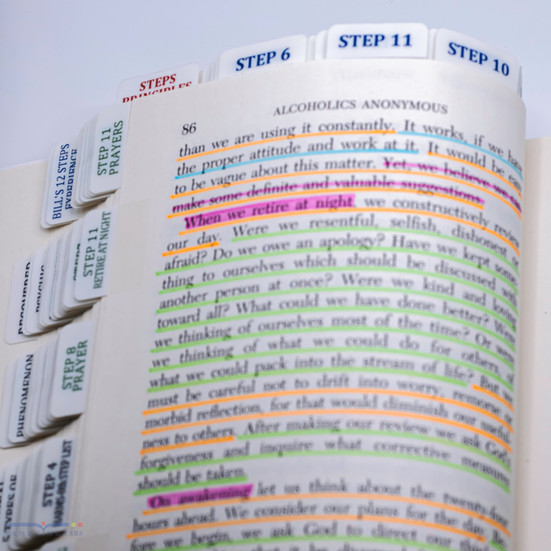 STEP 6
STEP 11
STEP 10
STEPS
PRINCIPLES
STEP 11
PRAYERS
BILL'S 12 STEPS
EXPERIENCE
STEP 11
RETIRE AT NIGHT
STEP 8
PRAYER
PHENOMENON
STEP 4
HANDS-ON STEP LIST
86
ALCOHOLICS ANONYMOUS
than we are using it constantly. It works, if we have
the proper attitude and work at it. It would be easy
to be vague about this matter. Yet, we believe we can
make some definite and valuable suggestions.
When we retire at night, we constructively review
our day. Were we resentful, selfish, dishonest or
afraid? Do we owe an apology? Have we kept some-
thing to ourselves which should be discussed with
another person at once? Were we kind and loving
toward all? What could we have done better? Were
we thinking of ourselves most of the time? Or were
we thinking of what we could do for others, of
what we could pack into the stream of life? But we
must be careful not to drift into worry, remorse or
morbid reflection, for that would diminish our useful-
ness to others. After making our review we ask God's
forgiveness and inquire what corrective measures
should be taken.
On awakening let us think about the twenty-four
hours ahead. We consider our plans for the day. Be-
fore we begin, we ask God to direct our